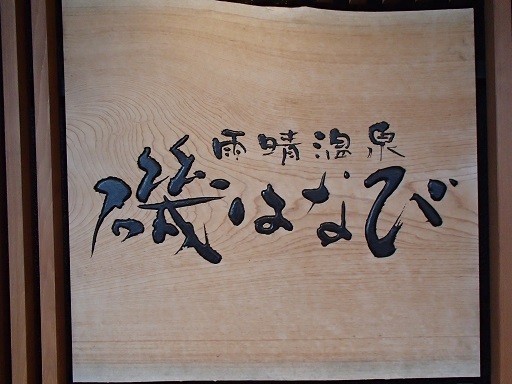 雨晴温泉
磯はなび